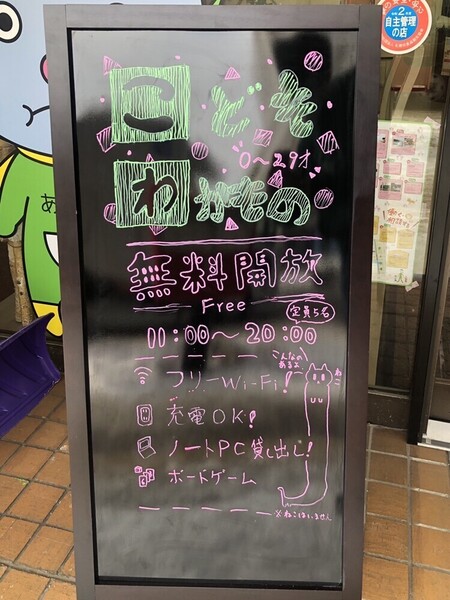 こども
0〜29才
わかもの
無料開放
Free
定員5名
11:00〜20:00
こんなの
あるよ
フリーWi-Fi!
ねこ
充電OK!
ノートPC貸し出し!
ボードゲーム
※ねこはいません
令和2年度
自主管理
の店
あ